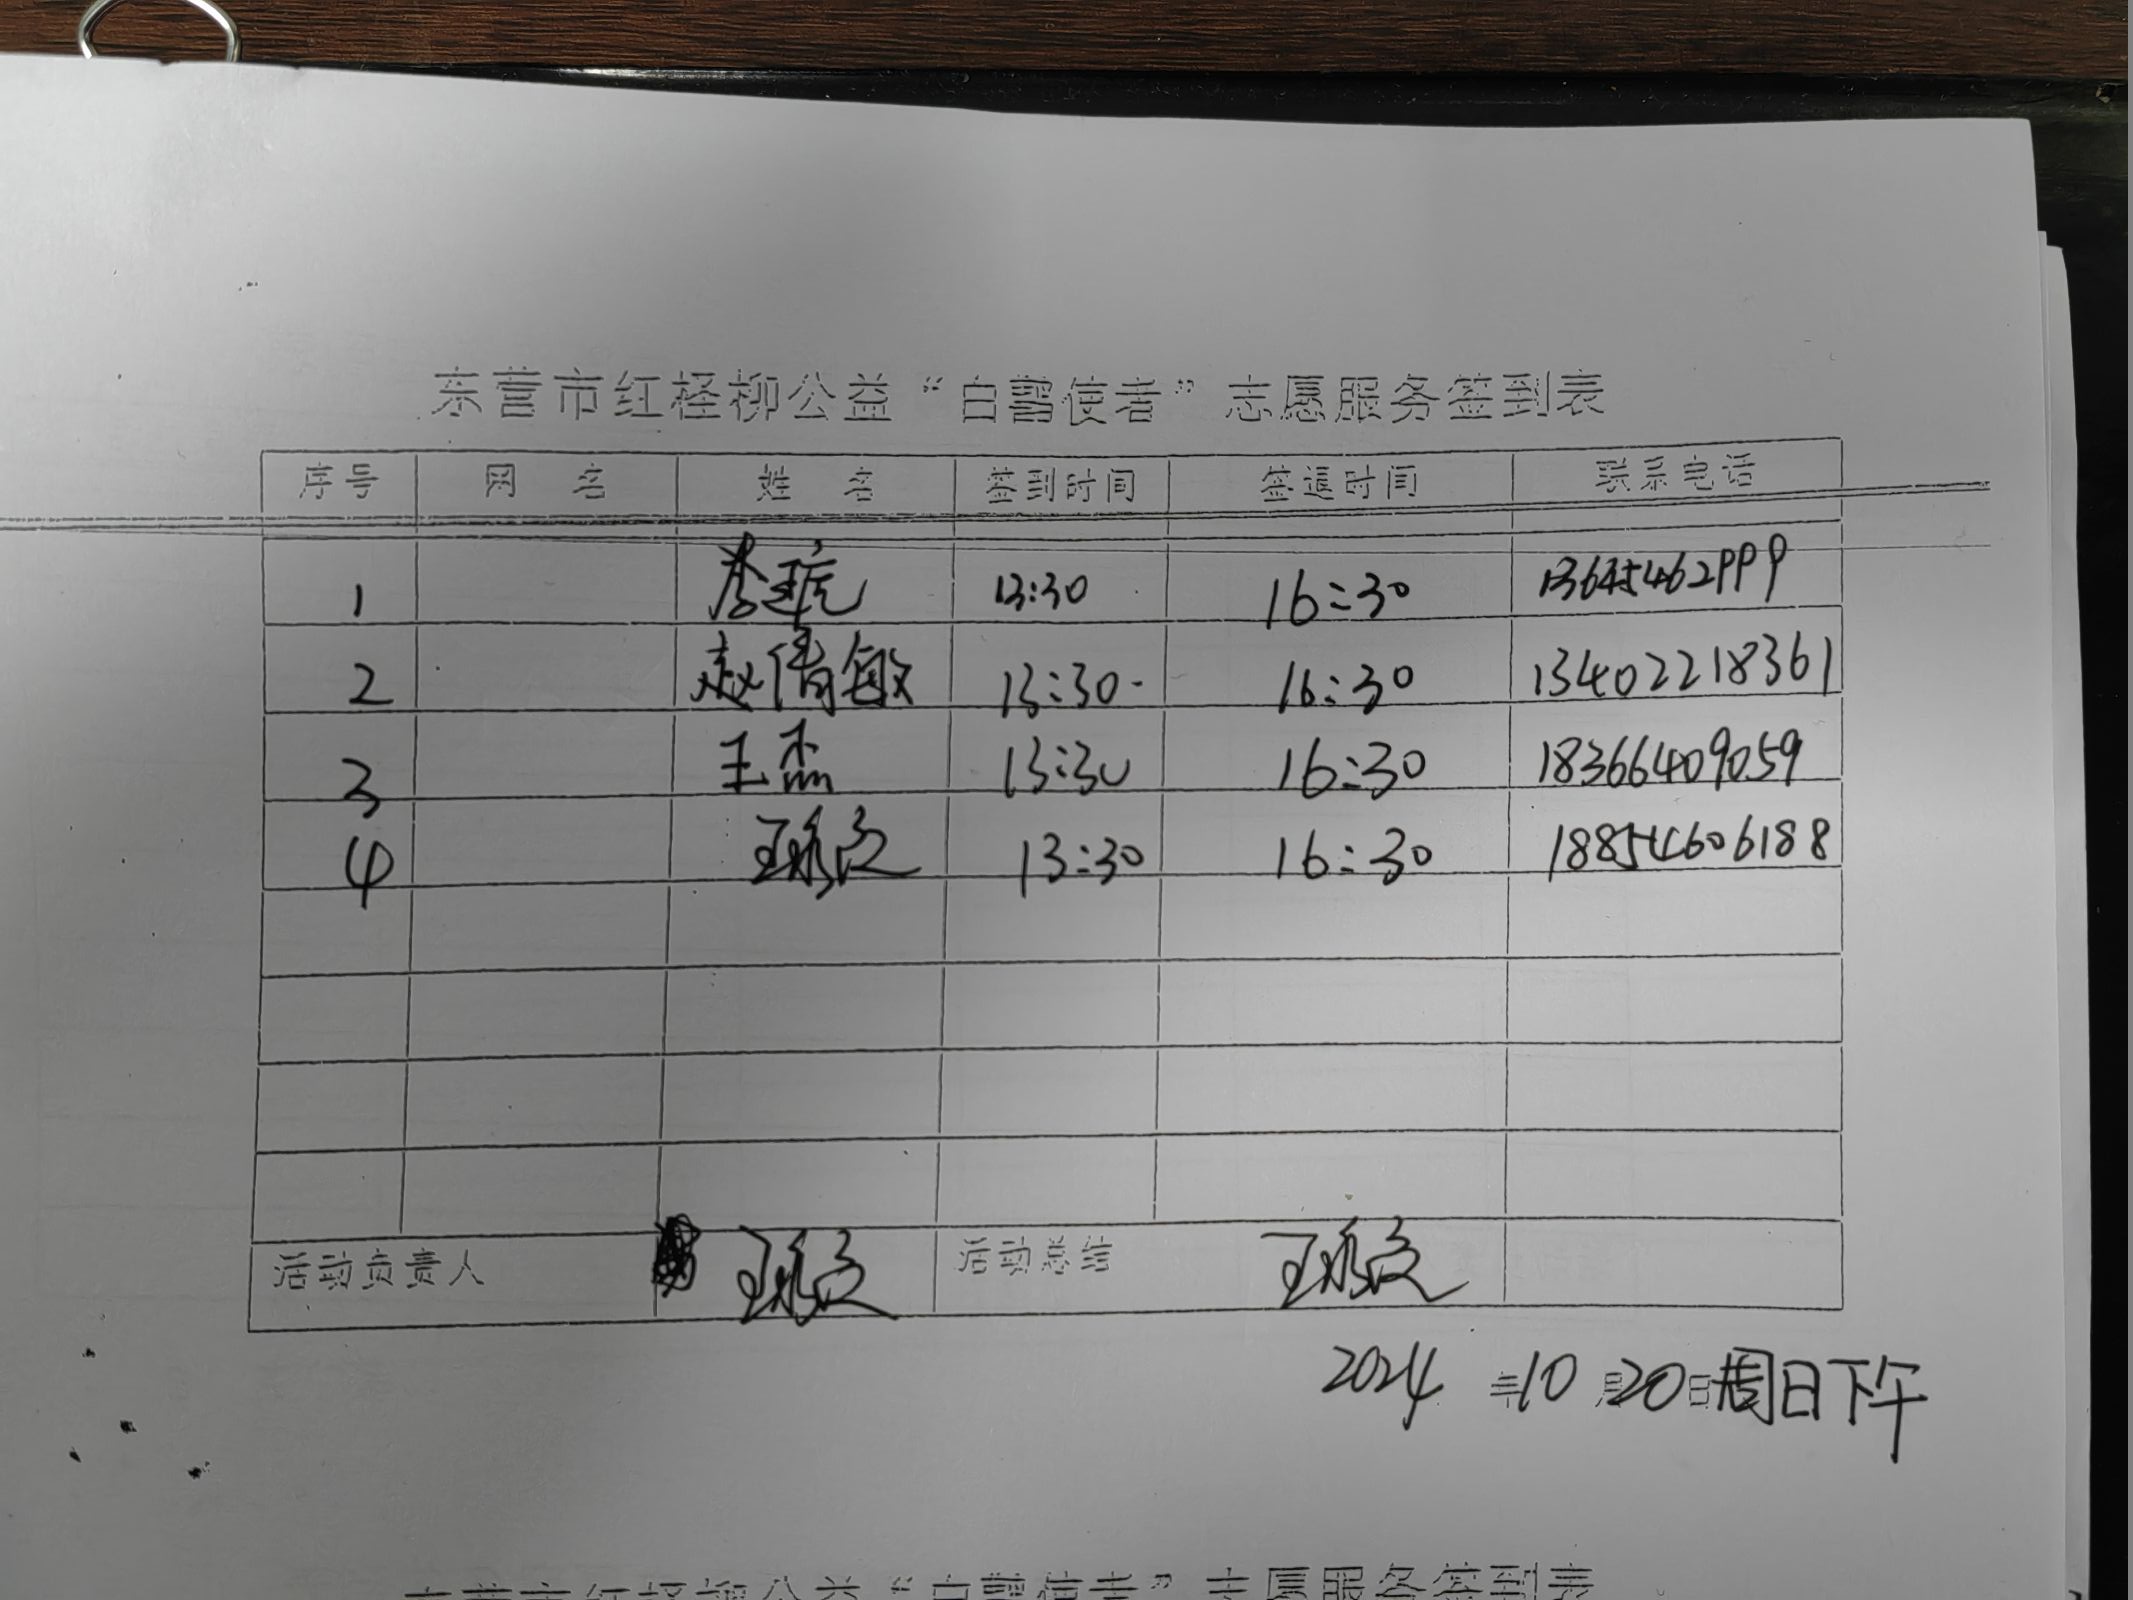 东营市红柽柳公益“白鹭使者”志愿服务签到表
序号 网 名 姓 名 签到时间 签退时间 联系电话
1 13:30 16:30
2 赵倩敏 13:30 16:30 13402218361
3 王杰 13:30 16:30 18366409059
4 13:30 16:30 18854606188
活动负责人 活动总结
2024 年 10 月 20 日 周日下午
东营市红柽柳公益“白鹭使者”志愿服务签到表